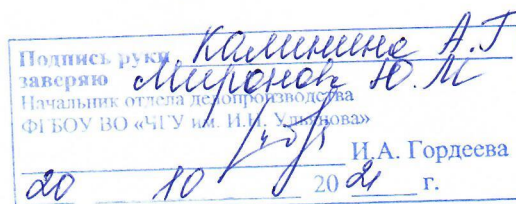 Подпись руки Калинина А.Г
заверяю Миронов Ю.М
Начальник отдела делопроизводства
ФГБОУ ВО «ЧГУ им. И.Н. Ульянова»
И.А. Гордеева
20 10 20 21 г.